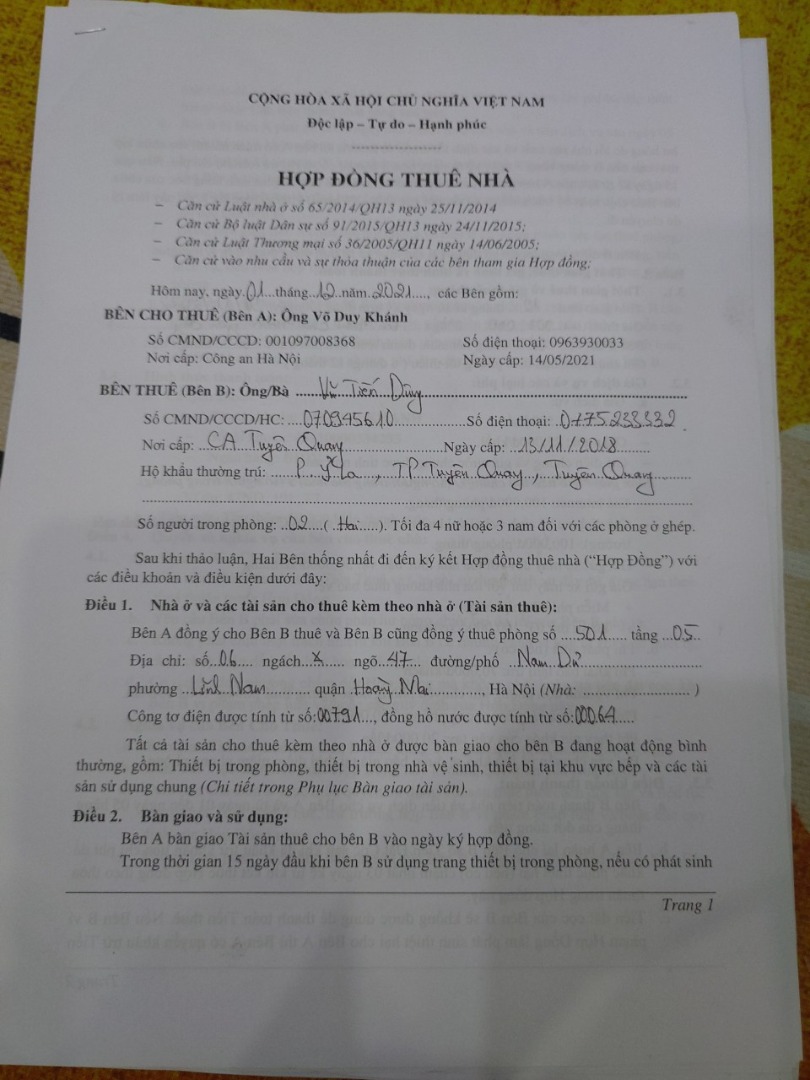 CỘNG HÒA XÃ HỘI CHỦ NGHĨA VIỆT NAM
Độc lập – Tự do – Hạnh phúc
HỢP ĐỒNG THUÊ NHÀ
– Căn cứ Luật nhà ở số 65/2014/QH13 ngày 25/11/2014
– Căn cứ Bộ luật Dân sự số 91/2015/QH13 ngày 24/11/2015;
– Căn cứ Luật Thương mại số 36/2005/QH11 ngày 14/06/2005;
– Căn cứ vào nhu cầu và sự thỏa thuận của các bên tham gia Hợp đồng;
Hôm nay, ngày 01 tháng 12 năm 2021...., các Bên gồm:
BÊN CHO THUÊ (Bên A): Ông Võ Duy Khánh
Số CMND/CCCD: 001097008368 Số điện thoại: 0963930033
Nơi cấp: Công an Hà Nội Ngày cấp: 14/05/2021
BÊN THUÊ (Bên B): Ông/Bà Vũ Tiến Dũng
Số CMND/CCCD/HC: 070945610 Số điện thoại: 0775233332
Nơi cấp: CA Tuyên Quang Ngày cấp: 13/11/2018
Hộ khẩu thường trú: P. Ỷ La, TP Tuyên Quang, Tuyên Quang
Số người trong phòng: 02 (Hai). Tối đa 4 nữ hoặc 3 nam đối với các phòng ở ghép.
Sau khi thảo luận, Hai Bên thống nhất đi đến ký kết Hợp đồng thuê nhà (“Hợp Đồng”) với
các điều khoản và điều kiện dưới đây:
Điều 1. Nhà ở và các tài sản cho thuê kèm theo nhà ở (Tài sản thuê):
Bên A đồng ý cho Bên B thuê và Bên B cũng đồng ý thuê phòng số 501 tầng 05
Địa chỉ: số 06 ngách x ngõ 47 đường/phố Nam Dư
phường Lĩnh Nam quận Hoàng Mai, Hà Nội (Nhà: ........................ )
Công tơ điện được tính từ số: 00791, đồng hồ nước được tính từ số: 00064
Tất cả tài sản cho thuê kèm theo nhà ở được bàn giao cho bên B đang hoạt động bình
thường, gồm: Thiết bị trong phòng, thiết bị trong nhà vệ sinh, thiết bị tại khu vực bếp và các tài
sản sử dụng chung (Chi tiết trong Phụ lục Bàn giao tài sản).
Điều 2. Bàn giao và sử dụng:
Bên A bàn giao Tài sản thuê cho bên B vào ngày ký hợp đồng.
Trong thời gian 15 ngày đầu khi bên B sử dụng trang thiết bị trong phòng, nếu có phát sinh
Trang 1